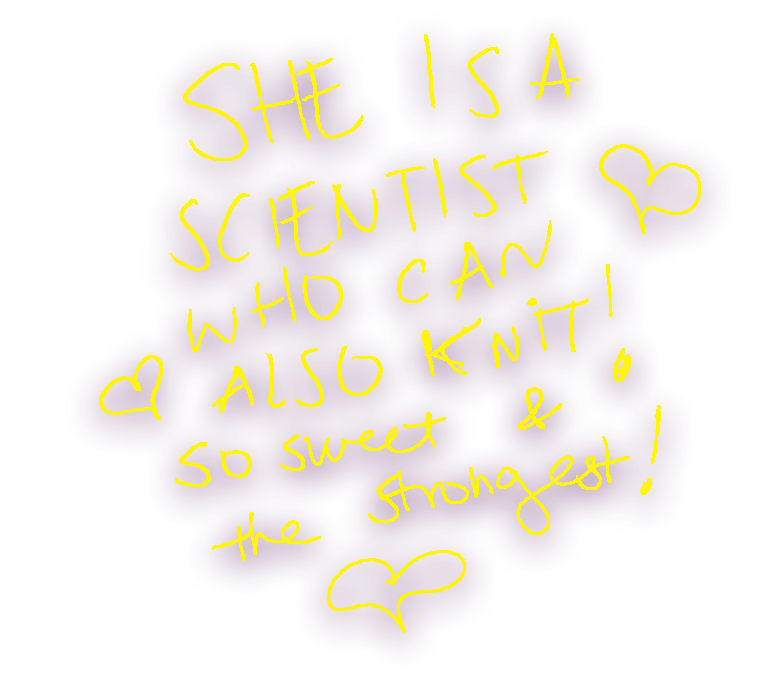 SHE IS A
SCIENTIST
WHO CAN
ALSO KNIT!
so sweet &
the strongest!